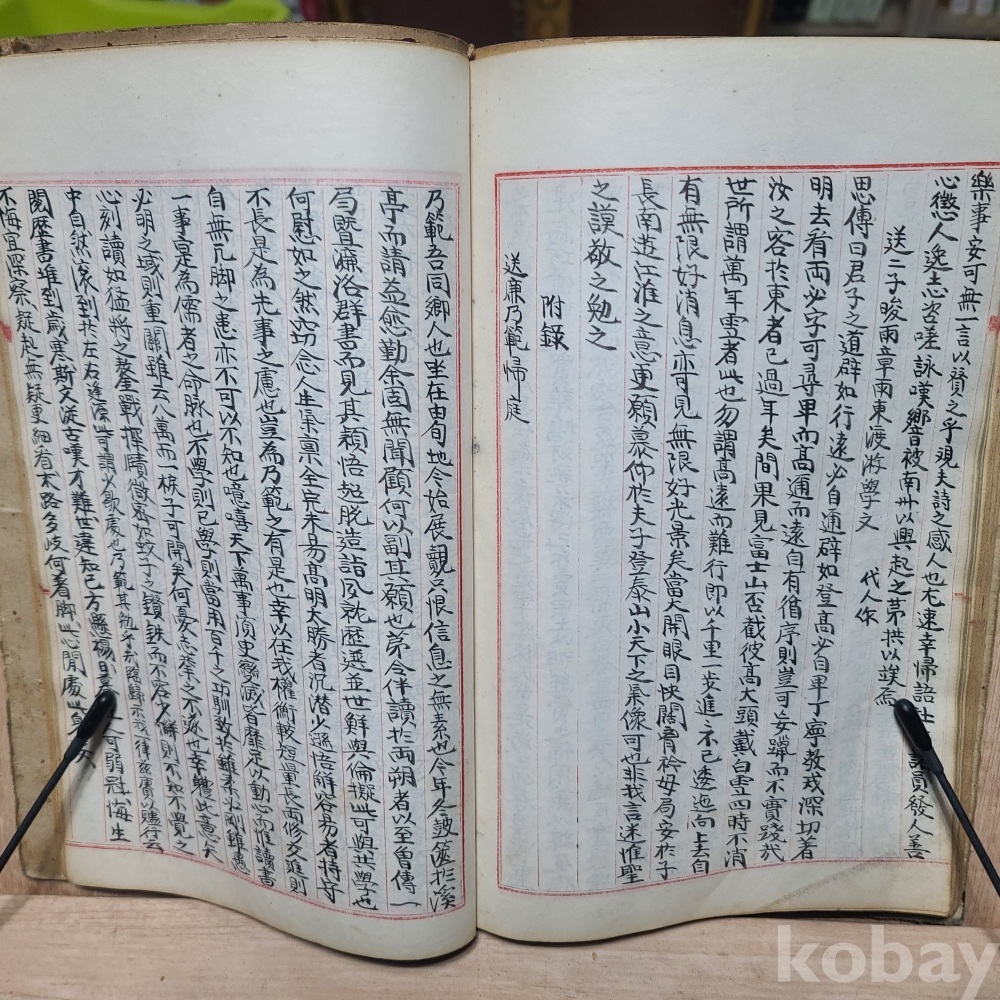 樂事安可無一言以贊之乎現夫詩之感人也尤速幸歸語社員發人善
心懲人逸志咨嗟詠嘆響被南州以興起之茅拱以竢焉
送二子晙雨章南東渡游學文 代人作
思傳曰君子之道辟如行遠必自邇辟如登高必自卑丁寧敎戒深切著
明去看兩必字可尋卑而高邇而遠自有循序則豈可妄躐而不實踐哉
汝之客於東者已過年矣間果見富士山否截彼高大頭戴白雪四時不消
世所謂萬年雪者此也勿謂高遠而難行即以千里一步進不已逶迤向上去自
有無限好消息亦可見無限好光景矣當大開眼目快闊胷衿毋局妄於子
長南遊江淮之意更願慕仰於夫子登泰山小天下之氣像可也非我言迷惟聖
之謨敬之勉之
附錄
送廉乃範歸庭
乃範吾同鄉人也坐在由旬地今始展覿只恨信息之無素也今年冬鼓篋於溪
亭而請益愈勤余固無聞顧何以副其願也第令伴讀於兩朔者以至曾傳一
局曁濂洛群書而見其穎悟起脫造詣夙就歷選並世鮮與倫擬此可與共學也
何慰如之然窃念人生氣禀全完未易高明太勝者況潛少遜悟解容易者持守
不長是為先事之慮也豈為乃範之有是也幸以在我權衡較短量長兩修交進則
自無冗脚之患亦不可以不知也噫嘻天下萬事須臾變滅者靡足以動心而惟讀書
一事寔是為儒者之命脉也不學則已學則當用百千之功馴致於雖柔必剛雖愚
必明之域則重關雖云八萬而一板子可開矣何憂志業之不遂也幸軆此意天
心刻讀如猛將之鏖戰探賾徵密如蚊子之鑽鉄而不容少解則不知不覺之
中自然滾到其左右逢源
閱歷書堆到歲寒斯文從古嘆才難世違知己方懸榻
不悔宜深察疑起無疑更細看末路多岐何着脚此心閒處